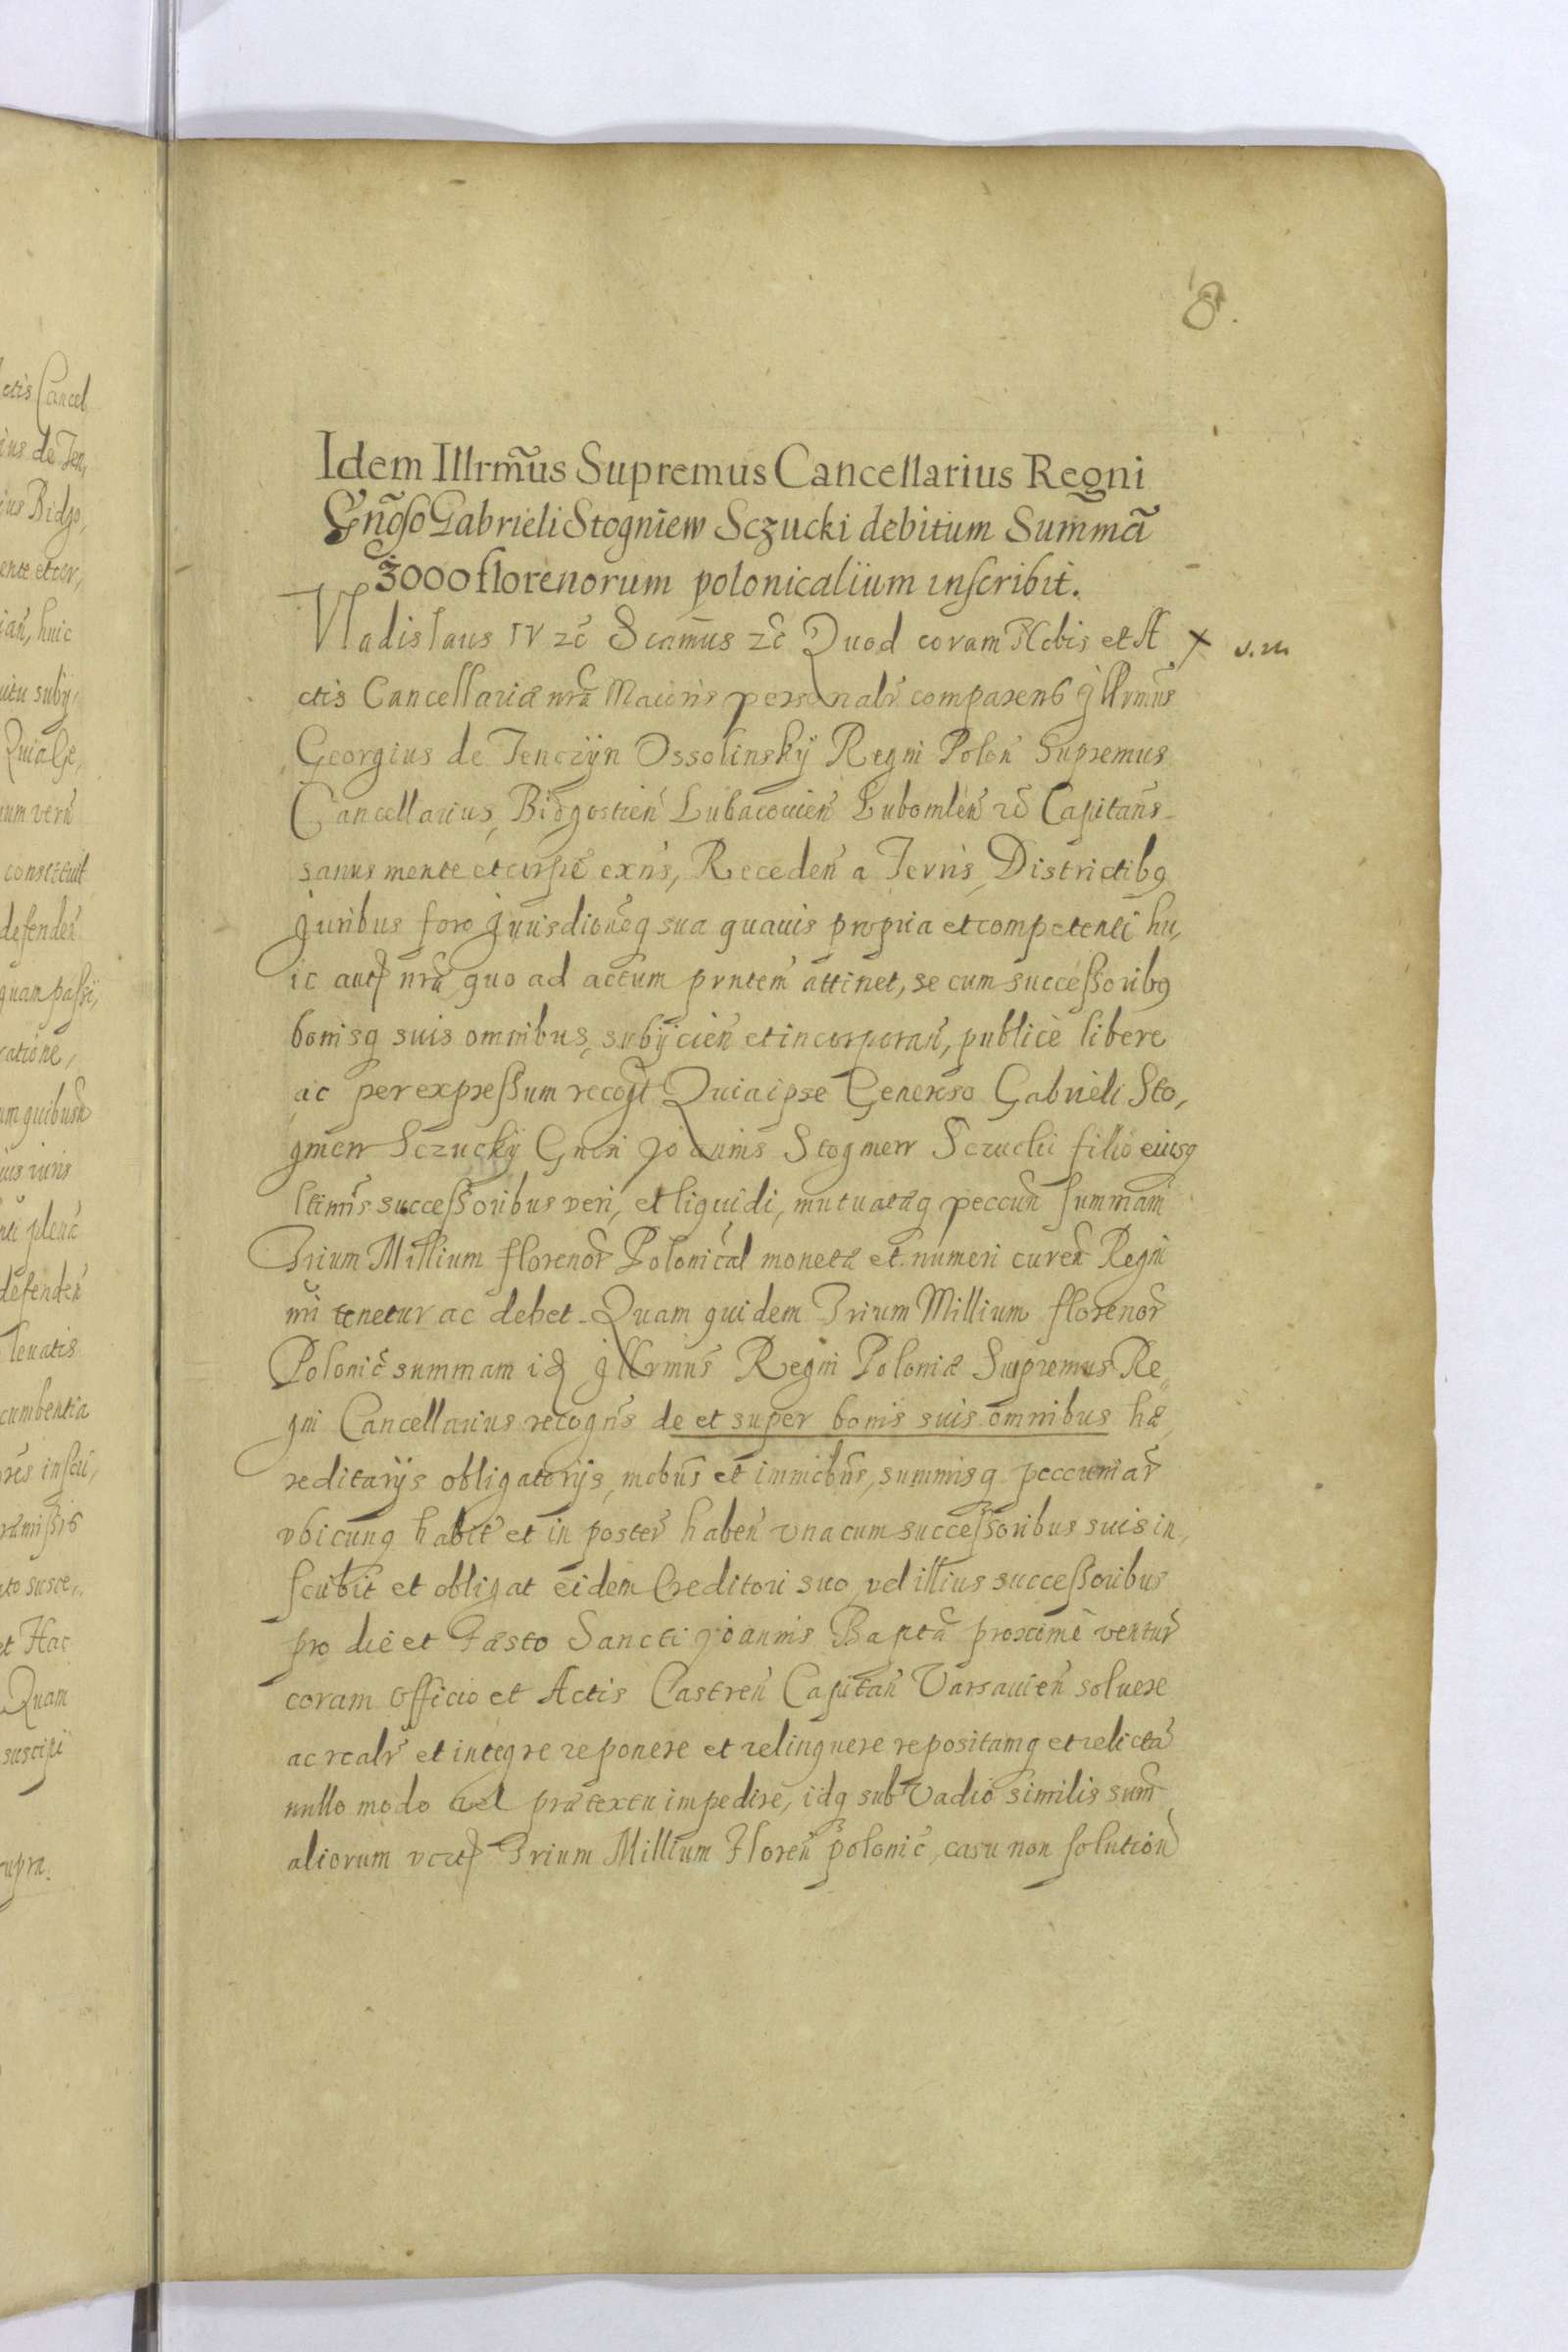 8.
Idem Illrm̃us Supremus Cancellarius Regni
Gñoso Gabrieli Stogniew Sczucki debitum Summã
3000 florenorum polonicaliium inscribit.
Vladislaus IV zc̃ Scam̃us zc̃ Quod coram Nobis et A
ctis Cancellariæ nrã Maioris personalr̃ comparens Jllrmus̃
Georgius de Tenczÿn Ossolinskÿ Regni Polon̄ Supremus
Cancellarius, Bidgostien̄ Lubacouien̄ Lubomlen̄ zc̃ Capitans̃
sanus mente et corpē exn̄s, Receden̄ a Terris, Districtibq
Juribus foro Jurisdioneq̃ sua quauis propria et competenti hu,
ic aut nrã quo ad actum prntem̃ attinet, se cum successoribq
bonisq suis omnibus, subÿcien̄ et incorporan̄, publice libere
ac per expressum recogt̃ Quia ipse Generoso Gabrieli Sto,
gniew Sczuckÿ Gnēn Joannis Stogniew Sczucki filio eiusq
ltimis̃ successoribus veri, et liquidi, mutuatæq peccun̄ summam
Trium Millium florenor̃ Polonicāl monetæ et numeri curen̄ Regni
nri tenetur ac debet. Quam quidem Trium Millium florenor̃
Polonic̃ summam id Jllrmus̃ Regni Poloniæ Supremus Re,
gni Cancellarius recogn̄s de et super bonis suis omnibus hæ,
reditarÿs obligatorÿs, mobus̃ et immobus̃, summisq peccuniar̃
vbicunq habit̃ et in poster̃ haben̄ vna cum successoribus suis in,
scribit et obligat eidem Creditori suo vel illius successoribus
pro die et Fæsto Sancti Joannis Baptã proxime ventur̃
coram Officio et Actis Castren̄ Capitan̄ Varsauien̄ soluere
ac realr̃ et integre reponere et relinquere repositamq et relictã
nullo modo vel prætextu impedire, idq sub Vadio similis sum̃
aliorum vert Trium Millium Floren̄ polonic̃, casu non solution̄